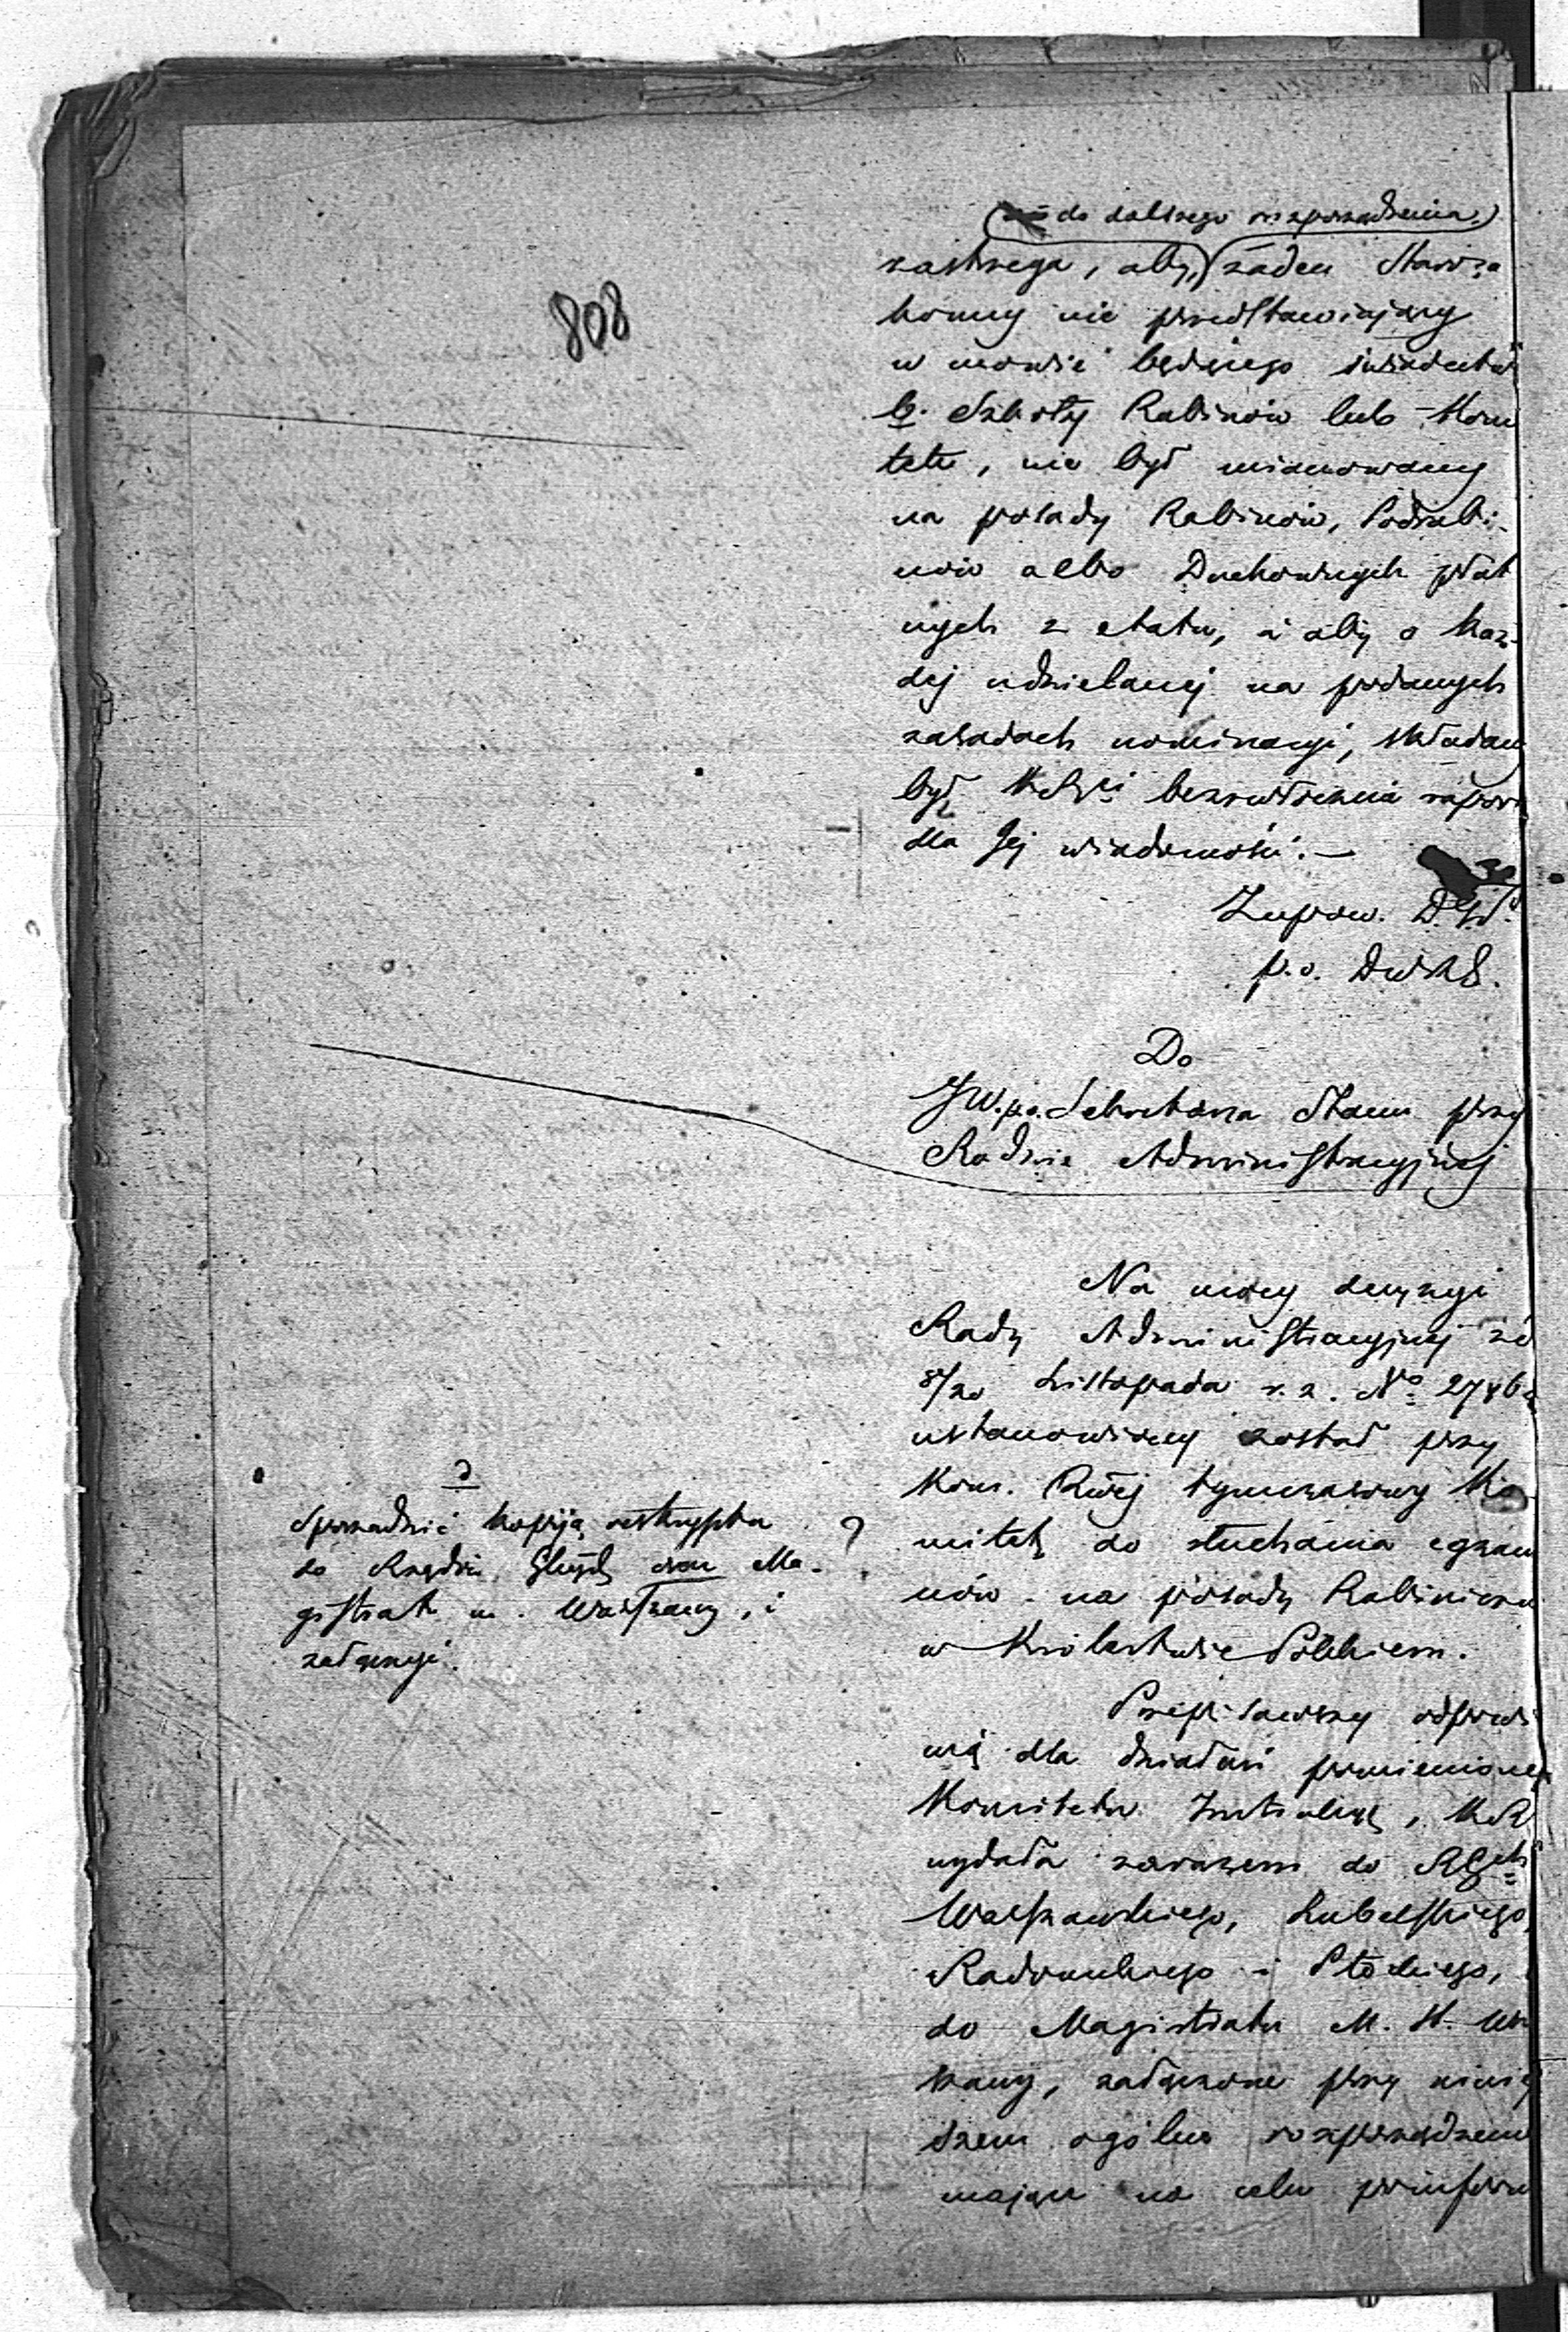 808
do dalszego rozporządzenia
zastrzega, aby żaden Staroza
konny nie przedstawiający
w mowie będącego świadectwa
b. Szkoły Rabinów lub Komi
tetu, nie był mianowany
na posady Rabinów, Podrabi-
nów albo Duchownych płat
nych z etatu, i aby o każ-
dej udzielanej na podanych
zasadach nominacyi, składany
był bezzwłocznie raport
dla Jej wiadomości. —
Zupow. D. G.
p.o. Dyr. K.
Do
JW. p.o. Sekretarza Stanu przy
Radzie Administracyjnej
Na mocy decyzyi
Rady Administracyjnej z d
8/20 Listopada r. z. No 2786
ustanowiony został przy
Kom. Rząej tymczasowy Ko
mitet do słuchania egzam
nów na posady Rabiniczne
w Królestwie Polskiem.
Przepisawszy odpowie
nią dla działań pomienionego
Komitetu Instrukcyą, KR
wydała zarazem do RGch
Warszawskiego, Lubelskiego,
Radomskiego i Płockiego,
do Magistratu M. St. War
szawy, załączone przy niniej
szem ogólne rozporządzenie
mające na celu poinform
sporządzić kopiją reskryptu
do Rządu Gub. oraz Ma-
gistratu m. Warszawy, i
załączyć.